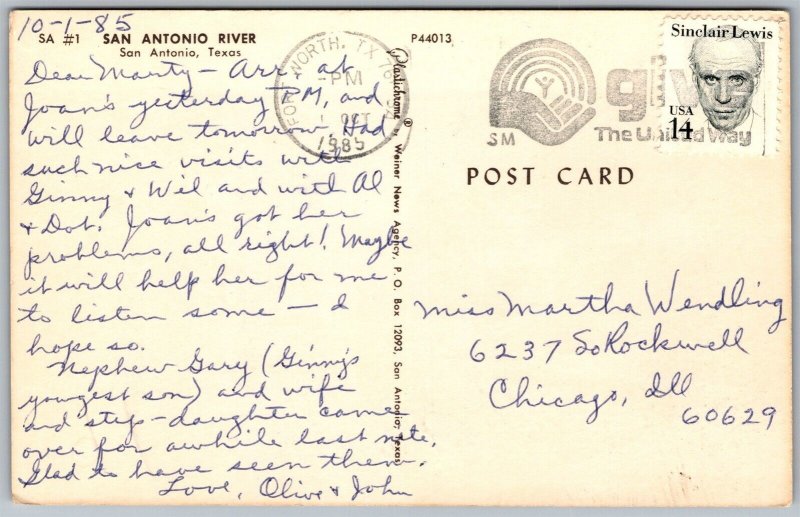 10-1-85
SA #1 SAN ANTONIO RIVER
San Antonio, Texas
P44013
Dear Marty — Arr. at
Joan's yesterday PM, and
will leave tomorrow. Had
such nice visits with
Ginny & Wil and with Al
& Dot. Joan's got her
problems, all right! Maybe
it will help her for me
to listen some — I
hope so.
Nephew Gary (Ginny's
youngest son) and wife
and step-daughter came
over for awhile last nite.
Glad to have seen them.
Love, Olive & John
Plastichrome ® by Weiner News Agency, P. O. Box 12093, San Antonio, Texas
FORT WORTH, TX 76
PM
1 OCT
1985
SM
give
The United Way
Sinclair Lewis
USA
14
POST CARD
Miss Martha Wendling
6237 So Rockwell
Chicago, Ill
60629